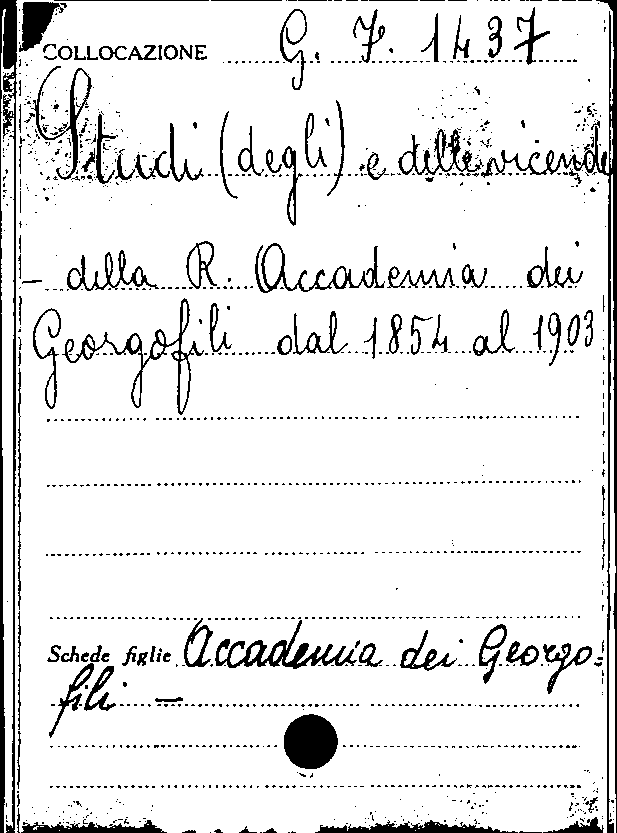 COLLOCAZIONE G. 7. 1437
Studi (degli) e delle vicende
- della R. Accademia dei
Georgofili dal 1854 al 1903
Schede figlie Accademia dei Georgo=
fili —